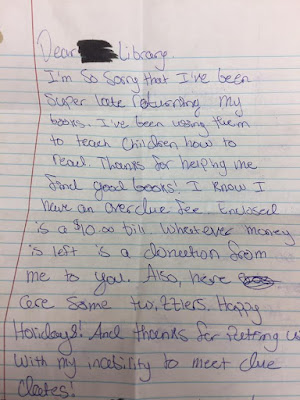 Dear Library.
I'm so sorry that I've been
super late returning my
books. I've been using them
to teach children how to
read. Thanks for helping me
find good books! I know I
have an overdue fee. Enclosed
is a $10.00 bill. Whatever money
is left is a donation from
me to you. Also, here
are some twizzlers. Happy
Holidays! And thanks for putting u
with my inability to meet due
dates!